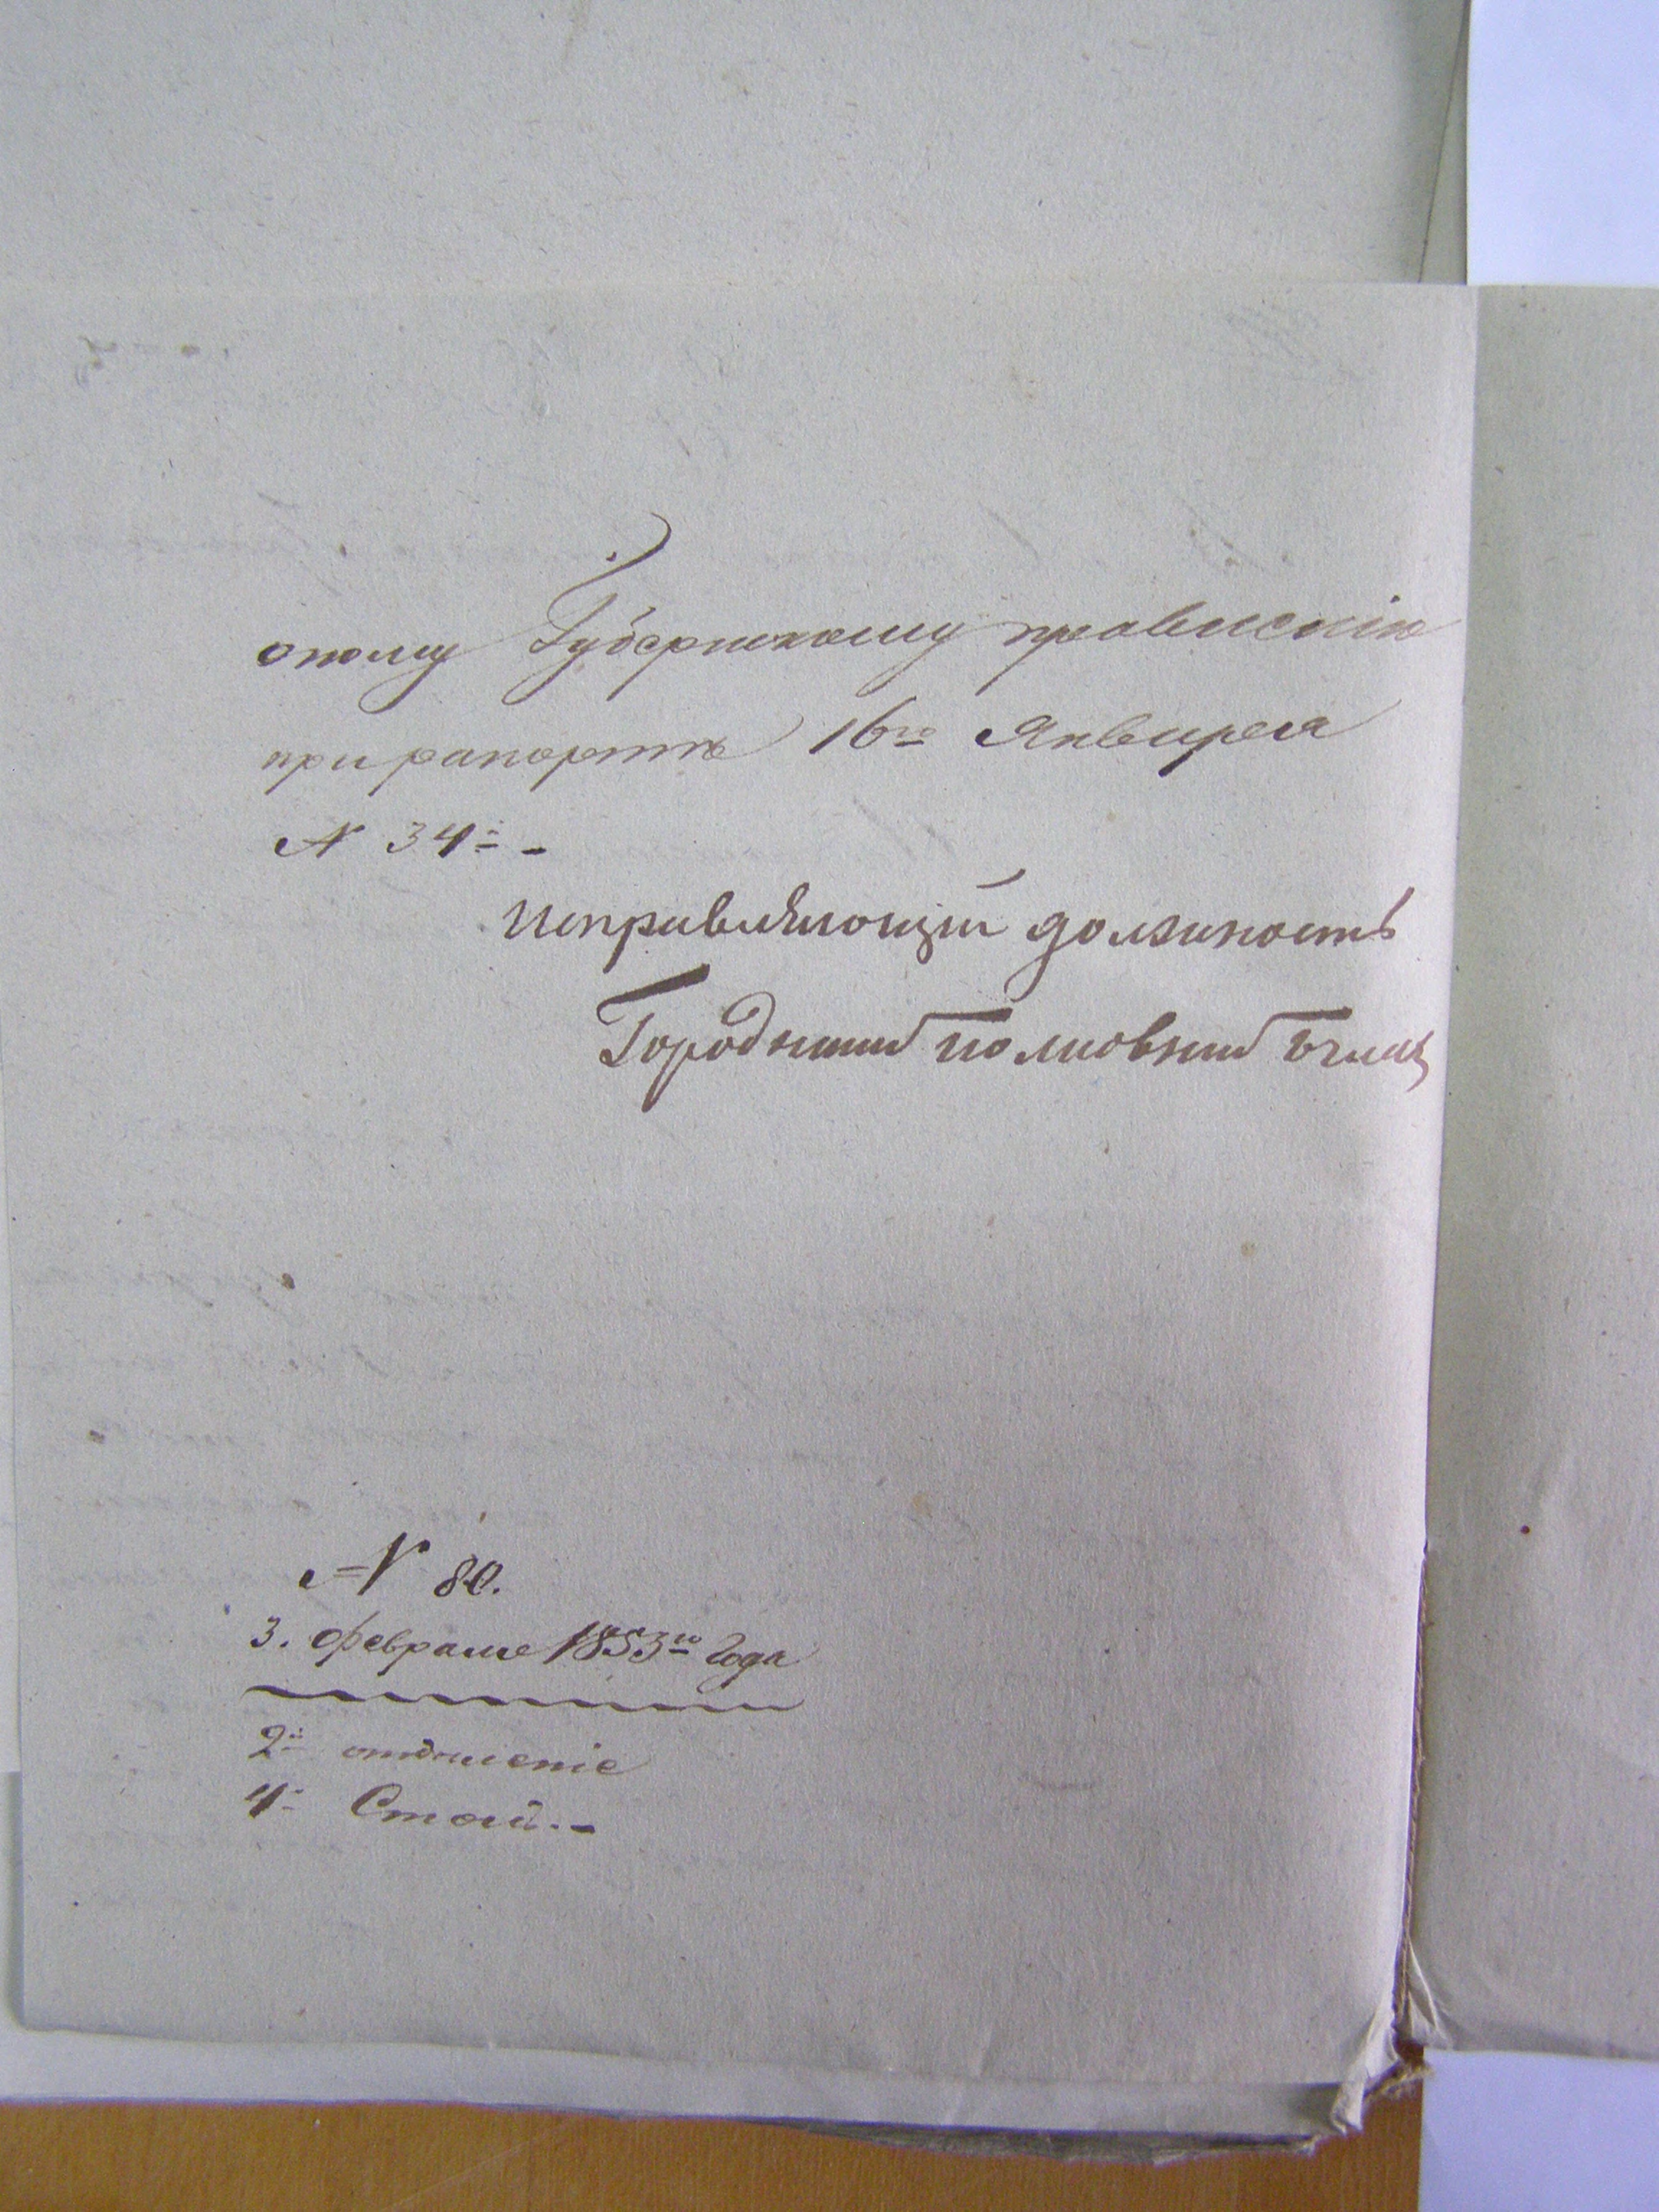 оному Губернскому правленію
при рапорте 16го Января
№ 34й -
Исправляющій должность
Городничий полковник
№ 80.
3. февраля 1853го года
2й отделеніе
4й Стол. -